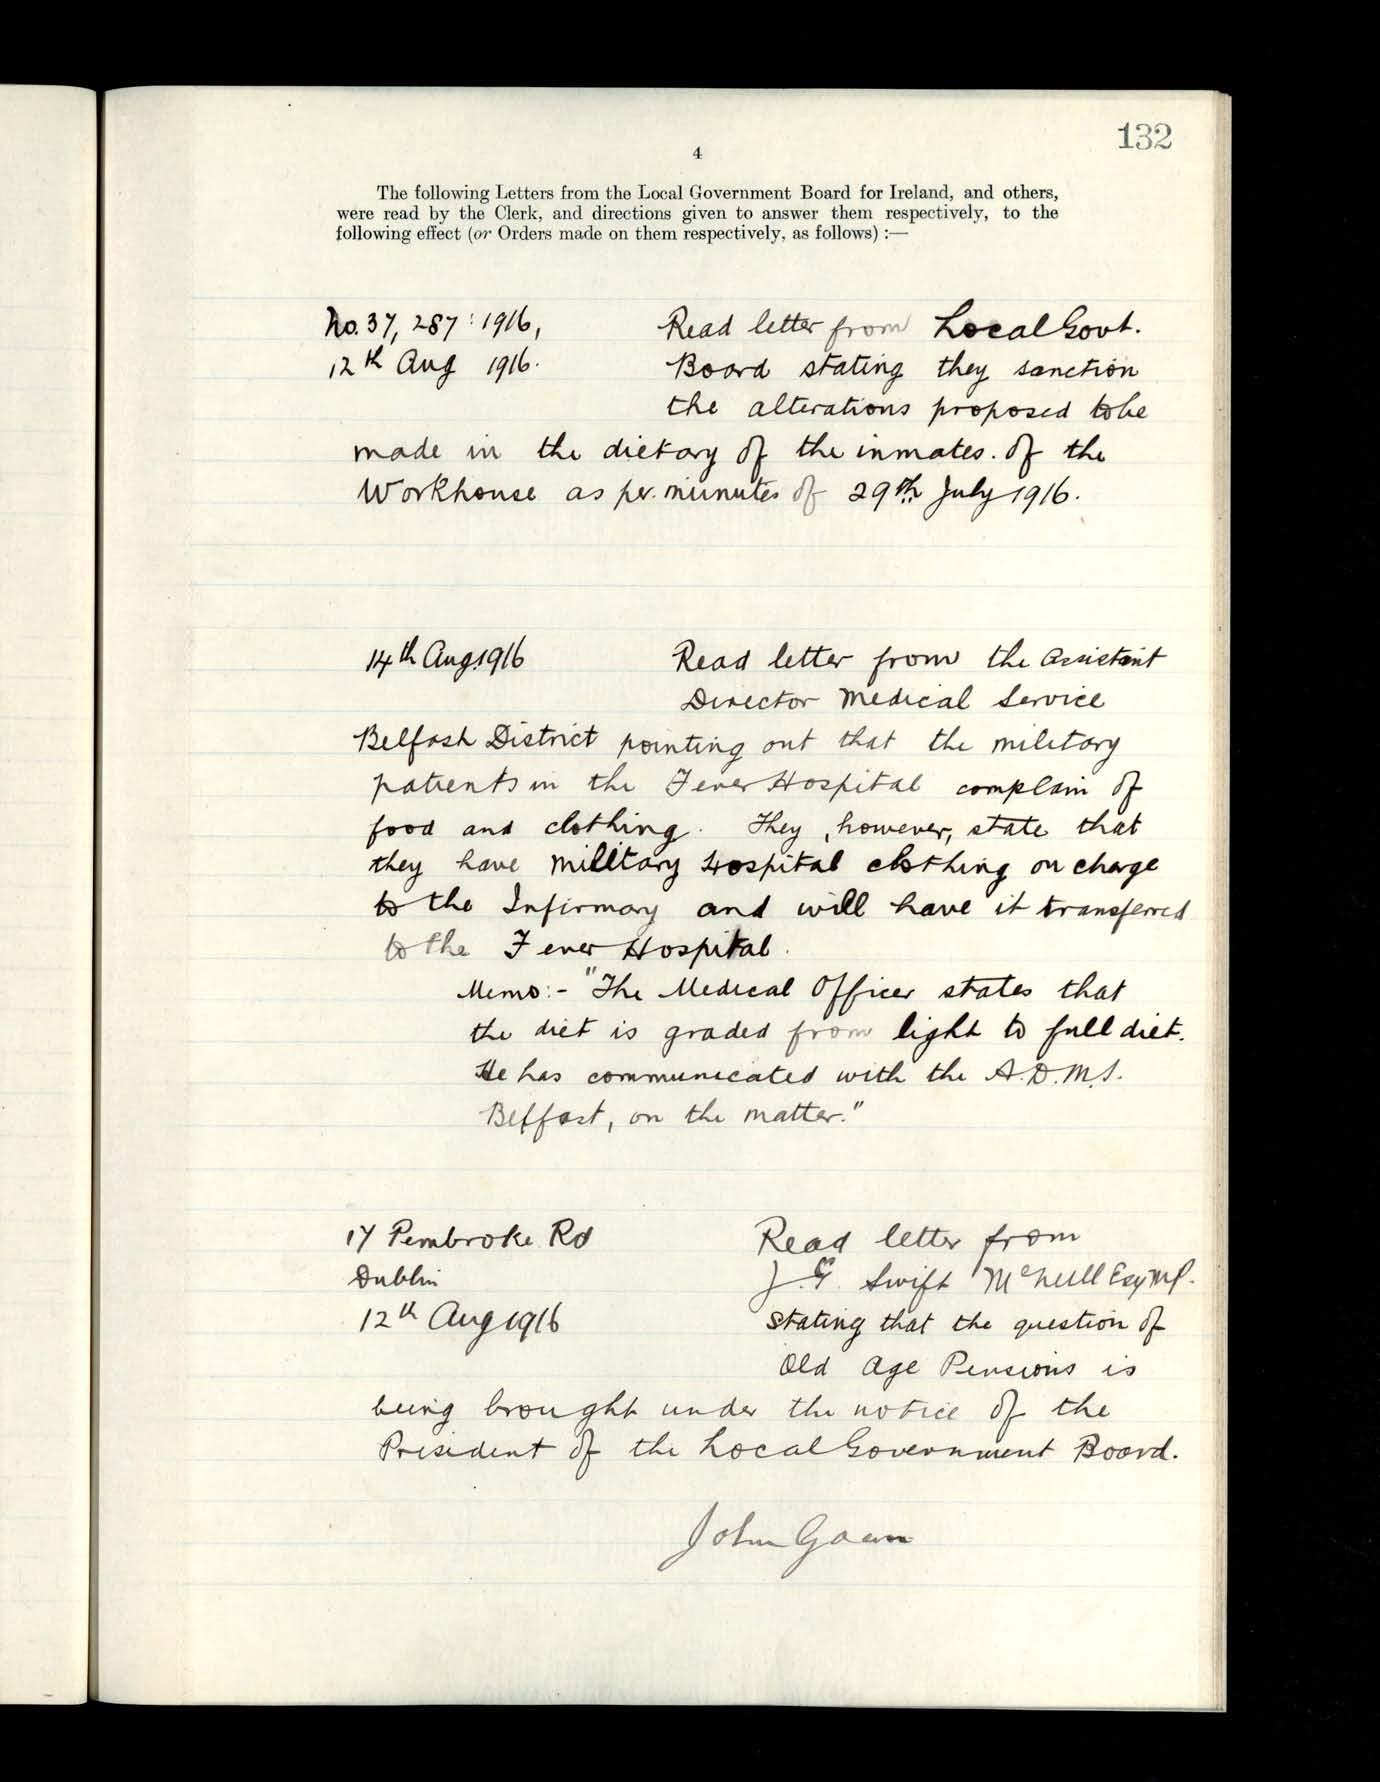 132
4
The following Letters from the Local Government Board for Ireland, and others,
were read by the Clerk, and directions given to answer them respectively, to the
following effect (or Orders made on them respectively, as follows) :—
No. 37,287 : 1916, Read letter from Local Govt.
12th Aug 1916. Board stating they sanction
the alterations proposed to be
made in the dietary of the inmates. of the
Workhouse as per minutes of 29th July 1916.
14th Aug. 1916 Read letter from the Assistant
Director Medical Service
Belfast District pointing out that the military
patients in the Fever Hospital complain of
food and clothing. They, however, state that
they have military Hospital clothing on charge
to the Infirmary and will have it transferred
to the Fever Hospital.
Memo:- "The Medical Officer states that
the diet is graded from light to full diet.
He has communicated with the A.D.M.S.
Belfast, on the matter."
17 Pembroke Rd Read letter from
Dublin J. G. Swift McNeill Esq MP.
12th Aug 1916 stating that the question of
Old Age Pensions is
being brought under the notice of the
President of the Local Government Board.
John